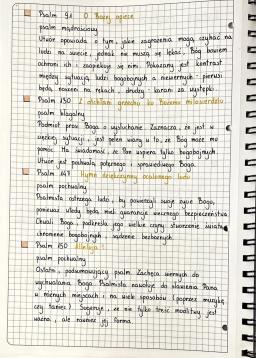 Psalm 91 O Bożej opiece
psalm mądrościowy
Utwór opowiada o tym, jakie zagrożenia mogą czyhać na
ludzi na świecie, jednak nie muszą się lękać. Bóg bowiem
ochroni ich i zaopiekuje się nimi. Pokazany jest kontrast
między sytuacją ludzi bogobojnych a niewiernych - pierwsi
będą noszeni na rękach, drudzy - karani za występki
Psalm 130 Z otchłani grzechu ku Bożemu miłosierdziu
psalm błagalny
Podmiot prosi Boga o wysłuchanie. Zaznacza, że jest w
ciężkiej sytuacji, jest pełen wiary w to, że Bóg może mu
pomóc. Ma świadomość, że Pan wspiera tylko bogobojnych.
Utwór jest pochwałą potężnego i sprawiedliwego Boga.
Psalm 147 Hymn dziękczynny ocalonego ludu
psalm pochwalny
Psalmista ostrzega ludzi, by powierzali swoje życie Bogu,
ponieważ wtedy będą mieli gwarancję wiecznego bezpieczeństwa
Chwali Boga, podkreśla jego wielkie czyny: stworzenie świata,
chronienie bogobojnych i sądzenie bezbożnych
Psalm 150 Alleluja!
psalm pochwalny
Ostatni, podsumowujący psalm. Zachęca wiernych do
wychwalania Boga. Psalmista nawołuje do sławienia Pana
w różnych miejscach i na wiele sposobów (poprzez muzykę
czy taniec). Sugeruje, że nie tylko treść modlitwy jest
ważna, ale również jej forma.